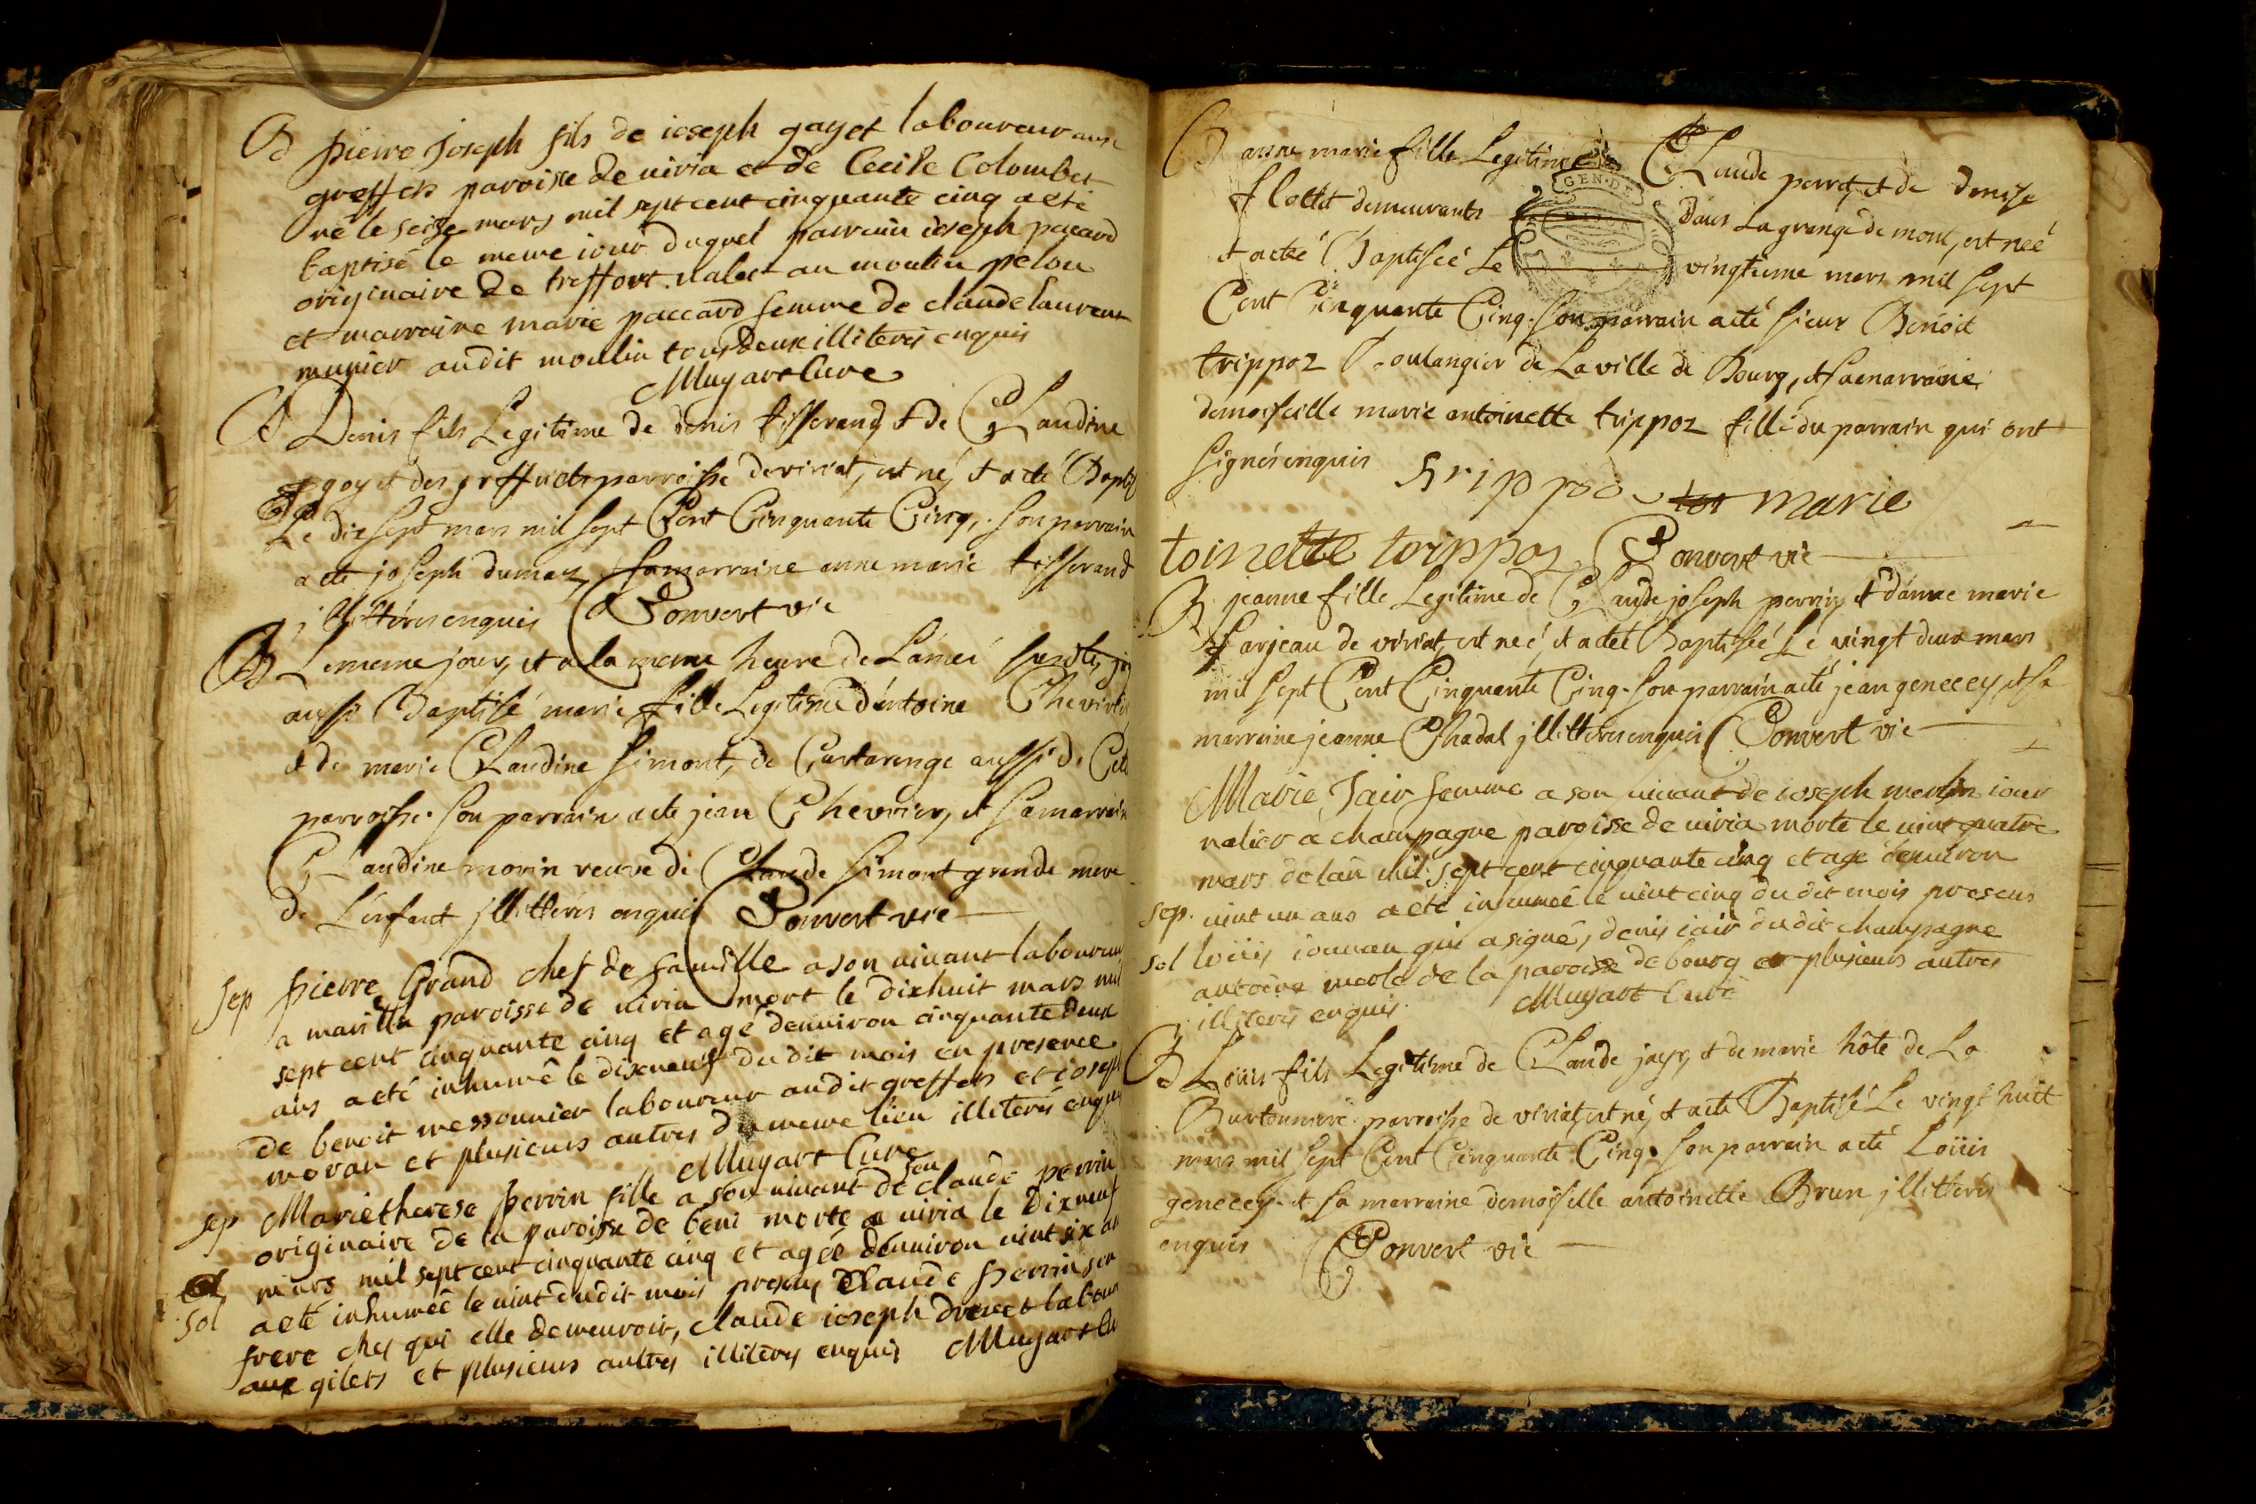 B pierre joseph fils de ioseph gayet laboureur aux
greffets paroisse de uiria et de Cecile Colombet
né le seize mars mil sept cent cinquante cinq a eté
baptisé le meme iour duquel parrain ioseph pacard
originaire de treffort valet au moulin pelou
et marraine marie paccard femme de claude laurent
munier audit moulin tous deux illiterés enquis
Muyart Curé
B Denis fils Legitime de denis tisserand et de Claudine
goyet des greffets parroisse deviriat, est né, et a eté Baptisé
Le dix sept mars mil sept Cent Cinquante Cinq, son parrain
a eté joseph dumas, sa marraine anne marie tisserand
jllittérés enquis Convert vic
B Le meme jour, et a la meme heure de L'amei
aussi Baptisé marie fille Legitime d'antoine Chevrier
et de marie Claudine Simont, de Curtarenge aussi de Cete
parroisse. son parrain a eté jean Chevrier, et sa marraine
Claudine morin veuve de Claude Simont grande mere
de L'enfant jllitterés enquis Convert vic
sep pierre Grand chef de famille a son uiuant laboureur
a marillia paroisse de uiria mort le dixhuit mars mil
sept cent cinquante cinq et agé denuiron cinquante deux
ans a eté inhumé le dixneuf du dit mois en presence
de benoit messonnier laboureur audit greffets et ioseph
moran et plusieurs autres du meme lieu illiterés enquis
Muyart Curé
sep Marie therese perrin fille a son uiuant de feu claude perrin
originaire de la paroisse de beni morte a uiria le Dixneuf
mars mil sept cent cinquante cinq et agée denuiron uint six ans
sol a eté inhumée le uint dudit mois presens Claude perrin son
frere ches qui elle demeuroit, claude ioseph dreuet laboureur
aux gilets et plusieurs autres illiterés enquis Muyart Cu
B anne marie fille Legitime Claude perret, et de denise
flottet demeurants dans La grange de mont, est née
et a eté Baptisée Le vingtieme mars mil sept
Cent Cinquante Cinq. son parrain a eté sieur Benoit
trippoz Boulangier de La ville de Bourg, et sa marraine
demoiselle marie antoinette trippoz fille du parrain qui ont
signés enquis trippoz marie
toinette trippoz Convert vic
B jeanne fille Legitime de Claude joseph perrin, et d'anne marie
farjeau de viriat, est née, et a eté Baptisée Le vingt deux mars
mil sept Cent Cinquante Cinq. son parrain a eté jean genecey, et sa
marraine jeanne Chadal jllitterés enquis Convert vic
Marie Jair femme a son uiuant de ioseph merlin iour
nalier a champagne paroisse de uiria morte le uint quatre
mars de lan mil sept cent cinquante cinq et agé denuiron
sep. uint un ans a eté inhumée le uint cinq du dit mois presens
sol loüis iouuan qui a signé, denis iair dudit champagne
antoine merle de la paroisse de bourg et plusieurs autres
illiterés enquis. Muyart Curé
B Loüis fils Legitime de Claude jayr, et de marie hôte de La
Burtonniere parroisse de viriat, est né, et a eté Baptisé Le vingt huit
mars mil sept Cent Cinquante Cinq. son parrain a eté Loüis
genecey. et sa marraine demoiselle antoinette Brun jllitterés
enquis Convert vic